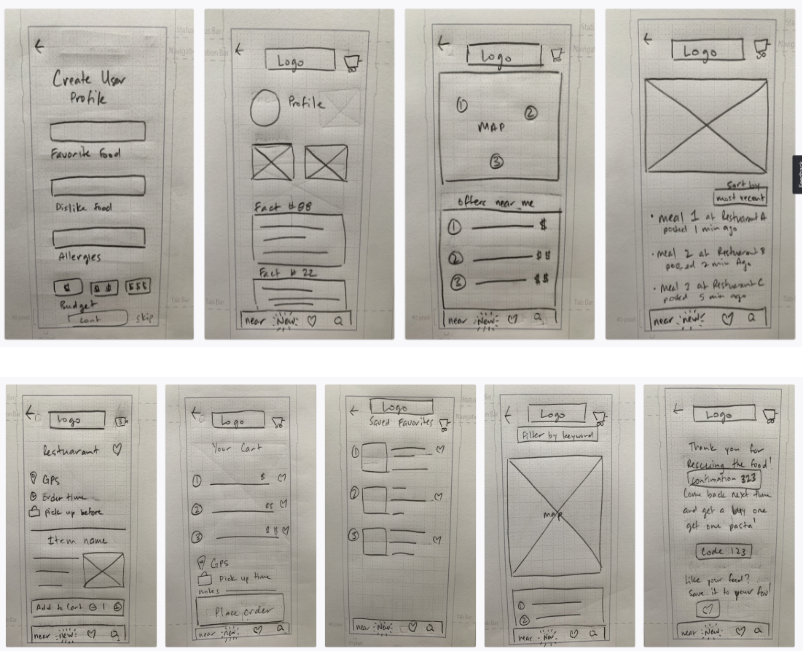 Create User
Profile
Favorite Food
Dislike Food
Allergies
$ $$ $$$
Budget
cont skip
Logo
Profile
Fact # 88
Fact # 22
near New! Q
Logo
1
2
MAP
3
offers near me
1 $
2 $$
3 $$
near New!
Logo
Sort by
most recent
• meal 1 at Restuarant A
posted 1 min ago
• meal 2 at Restuarant B
posted 2 min Ago
• meal 2 at Restuarant C
posted 5 min ago
near new!
Logo
Restuarant
GPS
Order time
Pick up before
Item name
Add to Cart 1
near new!
Logo
Your Cart
1 $
2 $$
3 $$
GPS
Pick up time
notes
Place order
near new!
Logo
Saved Favorites
1
2
3
near New!
Logo
Filter by keyword
map
1
2
near New!
Logo
Thank you for
Rescueing the food!
Confirmation 323
Come back next time
and get a buy one
get one pasta!
Code 123
Like your food?
Save it to your fav!
near New!